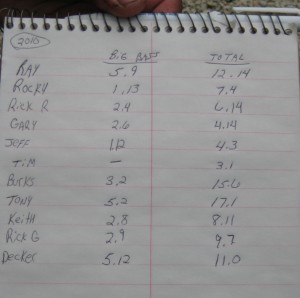 2010
BIG BASS TOTAL
RAY 5.9 12.14
ROCKY 1.13 7.4
RICK R 2.9 6.14
GARY 2.6 4.14
JEFF 1.12 4.3
TIM — 3.1
5.2 17.1
Keith 2.8 8.11
RICK G 2.9
Decker 5.12 11.0